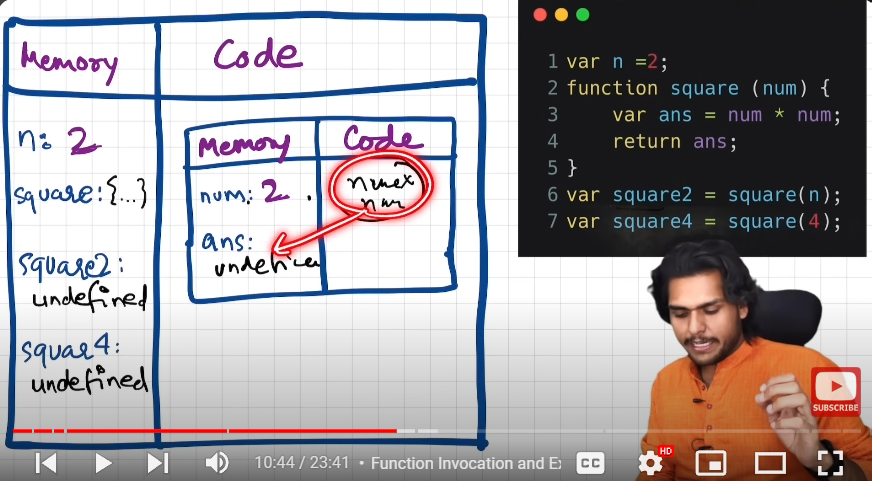 Memory
Code
n: 2
square: {...}
square2:
undefined
squar4:
undefined
Memory
Code
num: 2
num x
num
ans:
1 var n =2;
2 function square (num) {
3 var ans = num * num;
4 return ans;
5 }
6 var square2 = square(n);
7 var square4 = square(4);
SUBSCRIBE
10:44 / 23:41 • Function Invocation and Ex
CC
HD